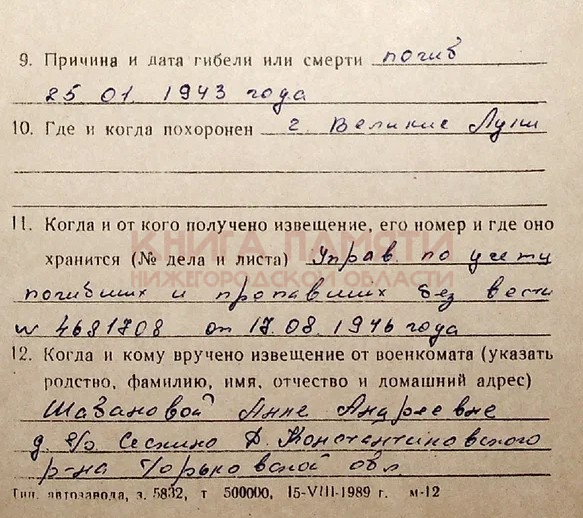 9. Причина и дата гибели или смерти погиб
25 01. 1943 года
10. Где и когда похоронен г Великие Луки
11. Когда и от кого получено извещение, его номер и где оно
КНИГА ПАМЯТИ
хранится (№ дела и листа) Управ. по учету
НИЖЕГОРОДСКОЙ ОБЛАСТИ
погибших и пропавших без вести
№ 4681708 от 17.08. 1946 года
12. Когда и кому вручено извещение от военкомата (указать
родство, фамилию, имя, отчество и домашний адрес)
Шазановой Анне Андреевне
д. Сескино Д. Константиновского
р-на Горьковской обл.
Тип. автозавода, з. 5832, т 500000, 15-VIII-1989 г. м-12